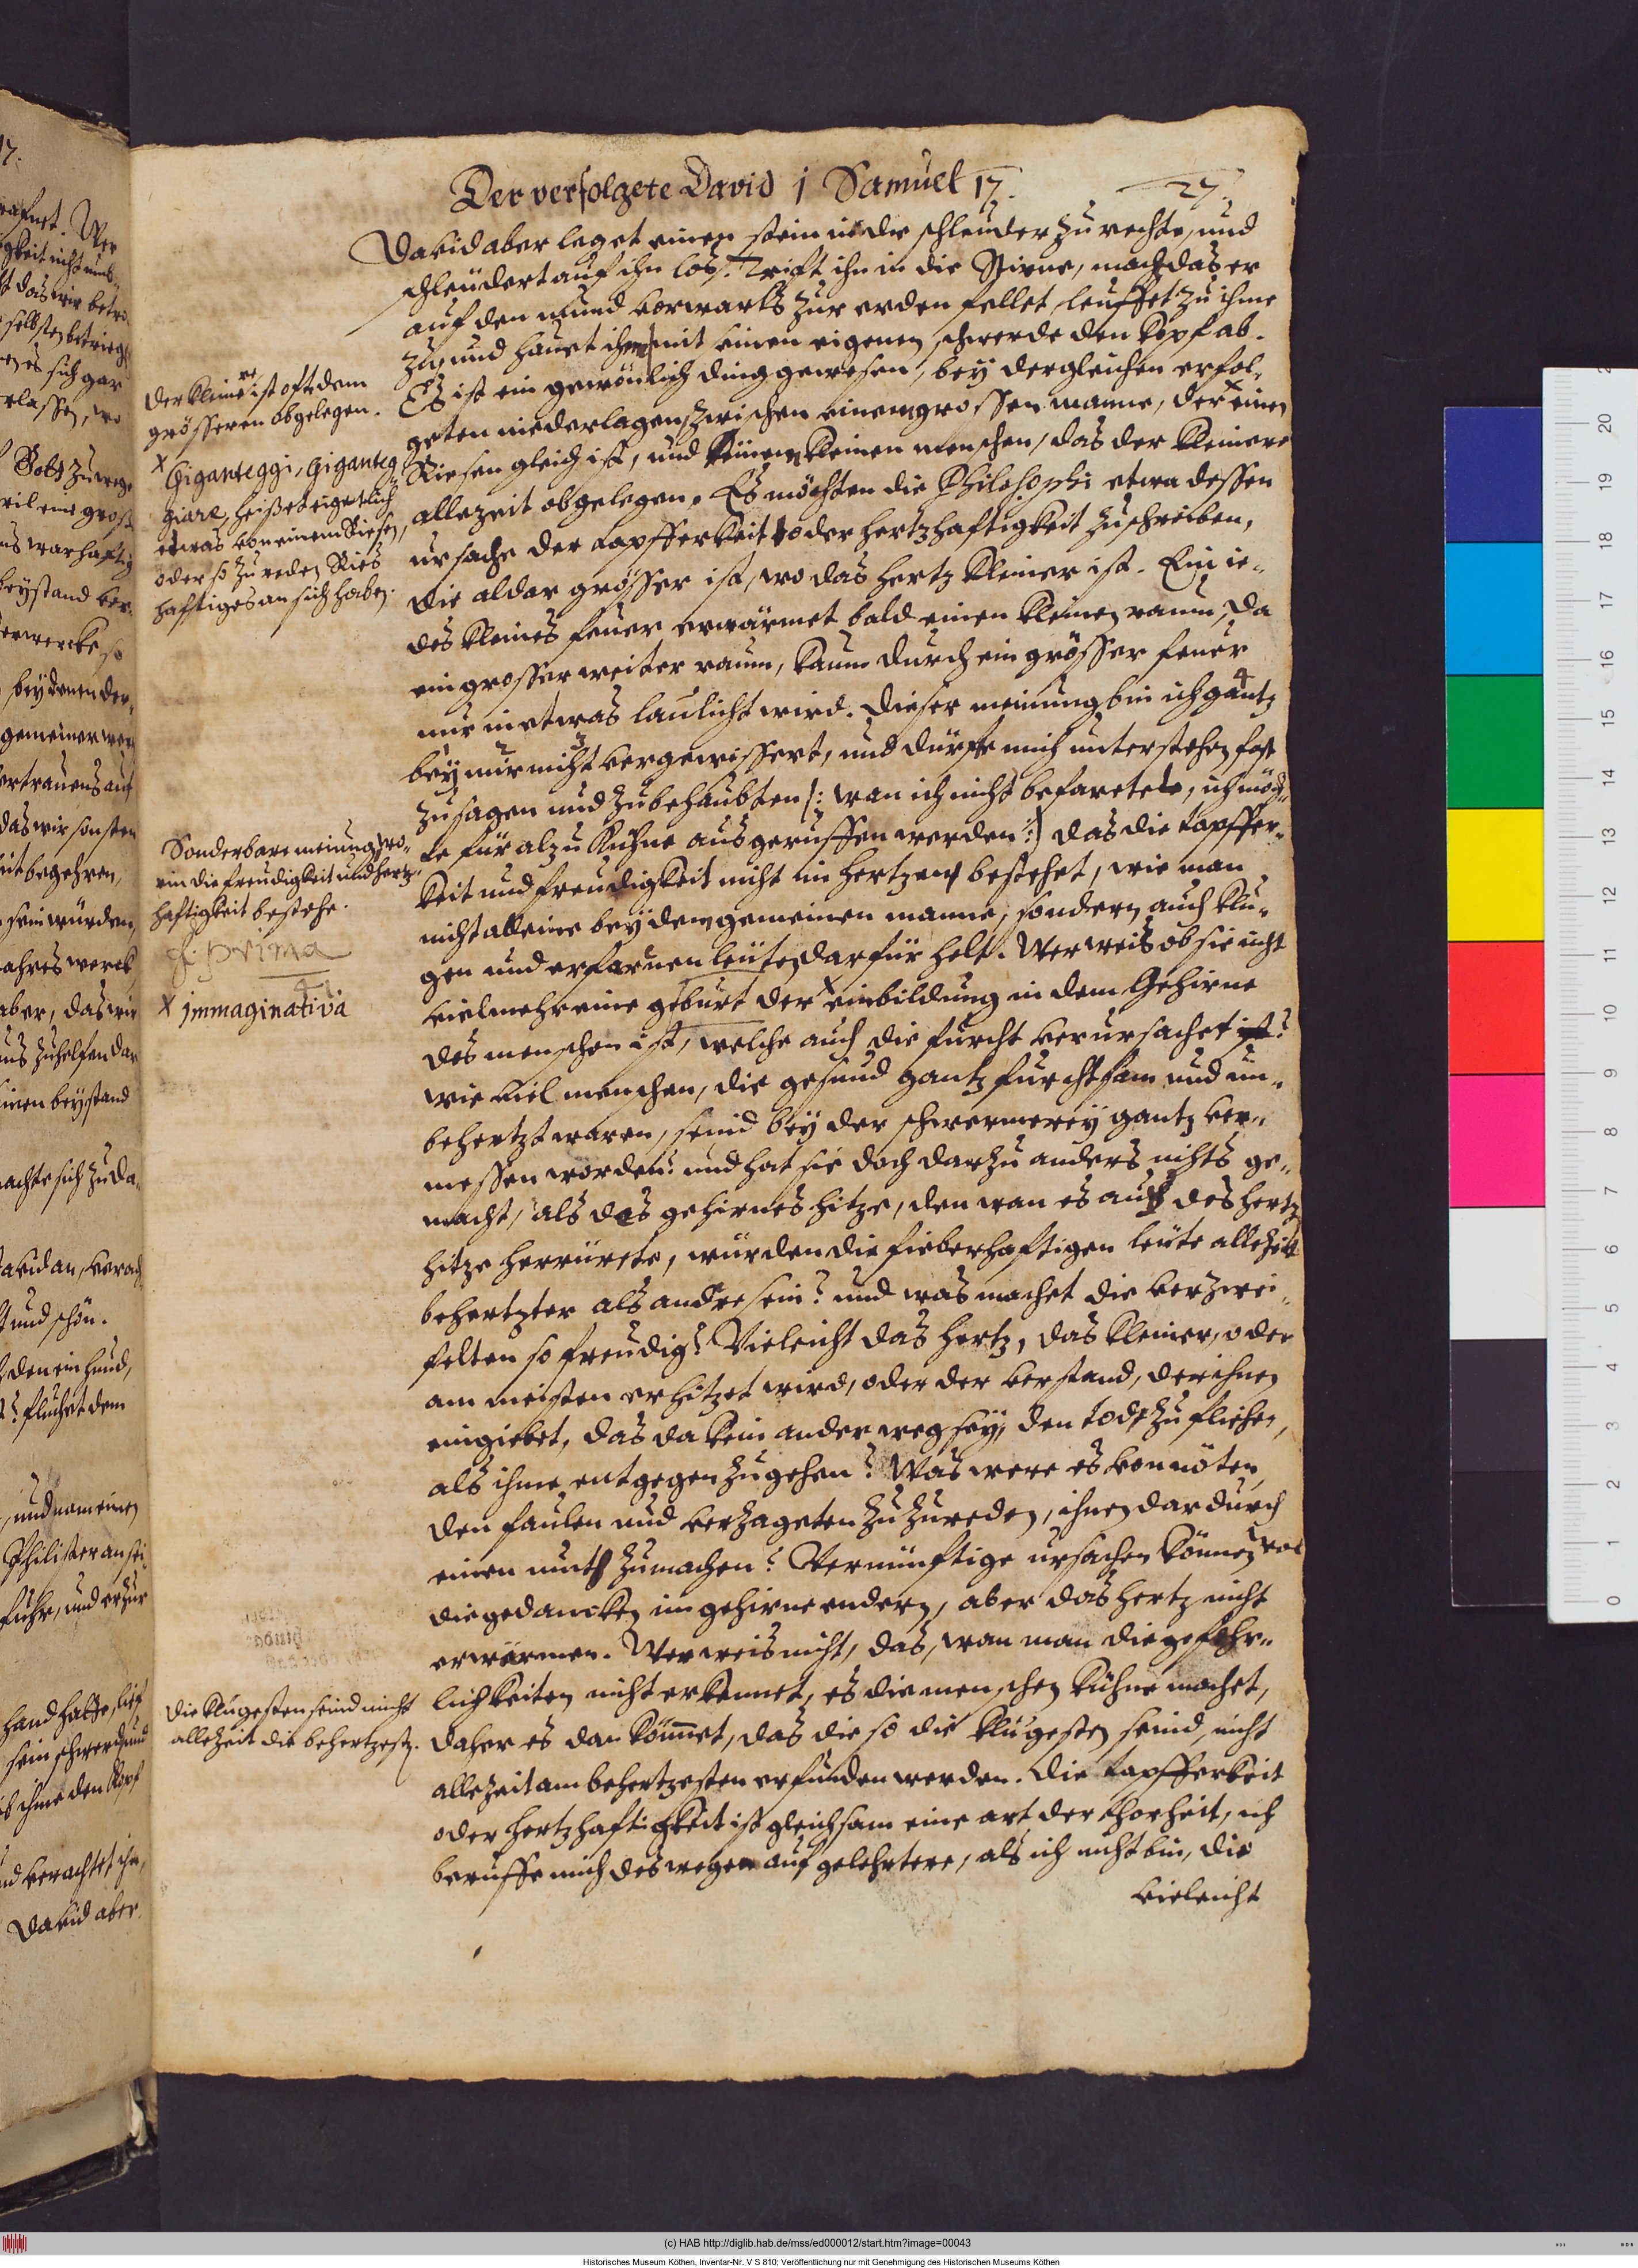 Der verfolgete David 1 Samuel 17. 27.
David aber leget einen stein in die schleuder zu rechte, und
schleudert auf ihn los, Trift ihn in die Stirne, mach das er
auf den mund vorwarts zur erden fellet, leuffet zu ihme
zu, und hauet ihm mit seinen eigenen schwerde den kopf ab.
Es ist ein gewönlich ding gewesen, bey dergleichen erfol-
geten niederlagen, zwischen einem grossen manne, der einen
Riesen gleich ist, und keinem kleinen menschen, das der kleinere
allezeit obgelegen. Es möchten die Philosophi etwa dessen
ursache der tapfferkeit oder hertzhaftigkeit zuschreiben,
die aldar grösser ist, wo das hertz kleiner ist. Ein ie-
des kleines feuer erwärmet bald einen kleinen raum, Da
ein grosser weiter raum, kaum durch ein grösser feuer
nur in etwas laulicht wird. Dieser meinung bin ich gantz
4
bey mir nicht vergewissert, und dürfte mich unterstehen fast
zu sagen und zubehaubten /: wan ich nicht befaretete, ich möch-
te für alzu kühne ausgeruffen werden :/ das die tapffer-
keit und freudigkeit nicht im hertzen bestehet, wie man
nicht alleine bey dem gemeinen manne, sondern auch klu-
gen und erfarnen leuten darfür helt. Wer weis ob sie nicht
vielmehr eine geburt der x einbildung in dem Gehirne
des menschen ist, welche auch die furcht verursachet?
wie viel menschen, die gesund gantz furchtsam und un-
behertzt waren, seind bey der schwermerey gantz ver-
messen worden? und hat sie doch darzu anders nichts ge-
macht, als des gehirnes hitze, den wan es auch des hertz
hitze herrürete, würden die fieberhaftigen leute allezeit
behertzter als andre sein? und was machet die verzwei-
felten so freudig? Vieleicht das hertz, das kleiner, oder
am meisten erhitzet wird, oder der verstand, der ihnen
eingiebet, das da kein ander weg sey, den todt zu fliehen,
als ihme entgegen zugehen? Was were es von nöten,
den faulen und verzageten zu zureden, ihnen dardurch
einen muth zumachen? Vernünftige ursachen können wol
die gedancken im gehirne endern, aber das hertz nicht
erwärmen. Wer weis nicht, das, wan man die gefehr-
lichkeiten nicht erkennet, es die menschen kühne machet,
daher es dan kömmet, das die so die klügesten seind, nicht
allezeit am behertzesten erfunden werden. Die tapfferkeit
oder hertzhaftigkeit ist gleichsam eine art der thorheit, ich
beruffe mich deswegen auf gelehrtere, als ich nicht bin, die
vieleicht
Der kleinere ist oft dem
grösseren obgelegen.
x Giganteggi, Giganteg
giare, heisset eigentlich
etwas von einem Riesen,
oder so zu reden Ries
hafftiges an sich haben.
Sonderbare meinung, wo-
rin die freudigkeit und hertz-
haftigkeit bestehe.
f. prima
x immaginativa
die klugesten seind nicht
allezeit die behertzesten.
0 1 2 3 4 5 6 7 8 9 10 11 12 13 14 15 16 17 18 19 20
(c) HAB http://diglib.hab.de/mss/ed000012/start.htm?image=00043
Historisches Museum Köthen, Inventar-Nr. V S 810; Veröffentlichung nur mit Genehmigung des Historischen Museums Köthen